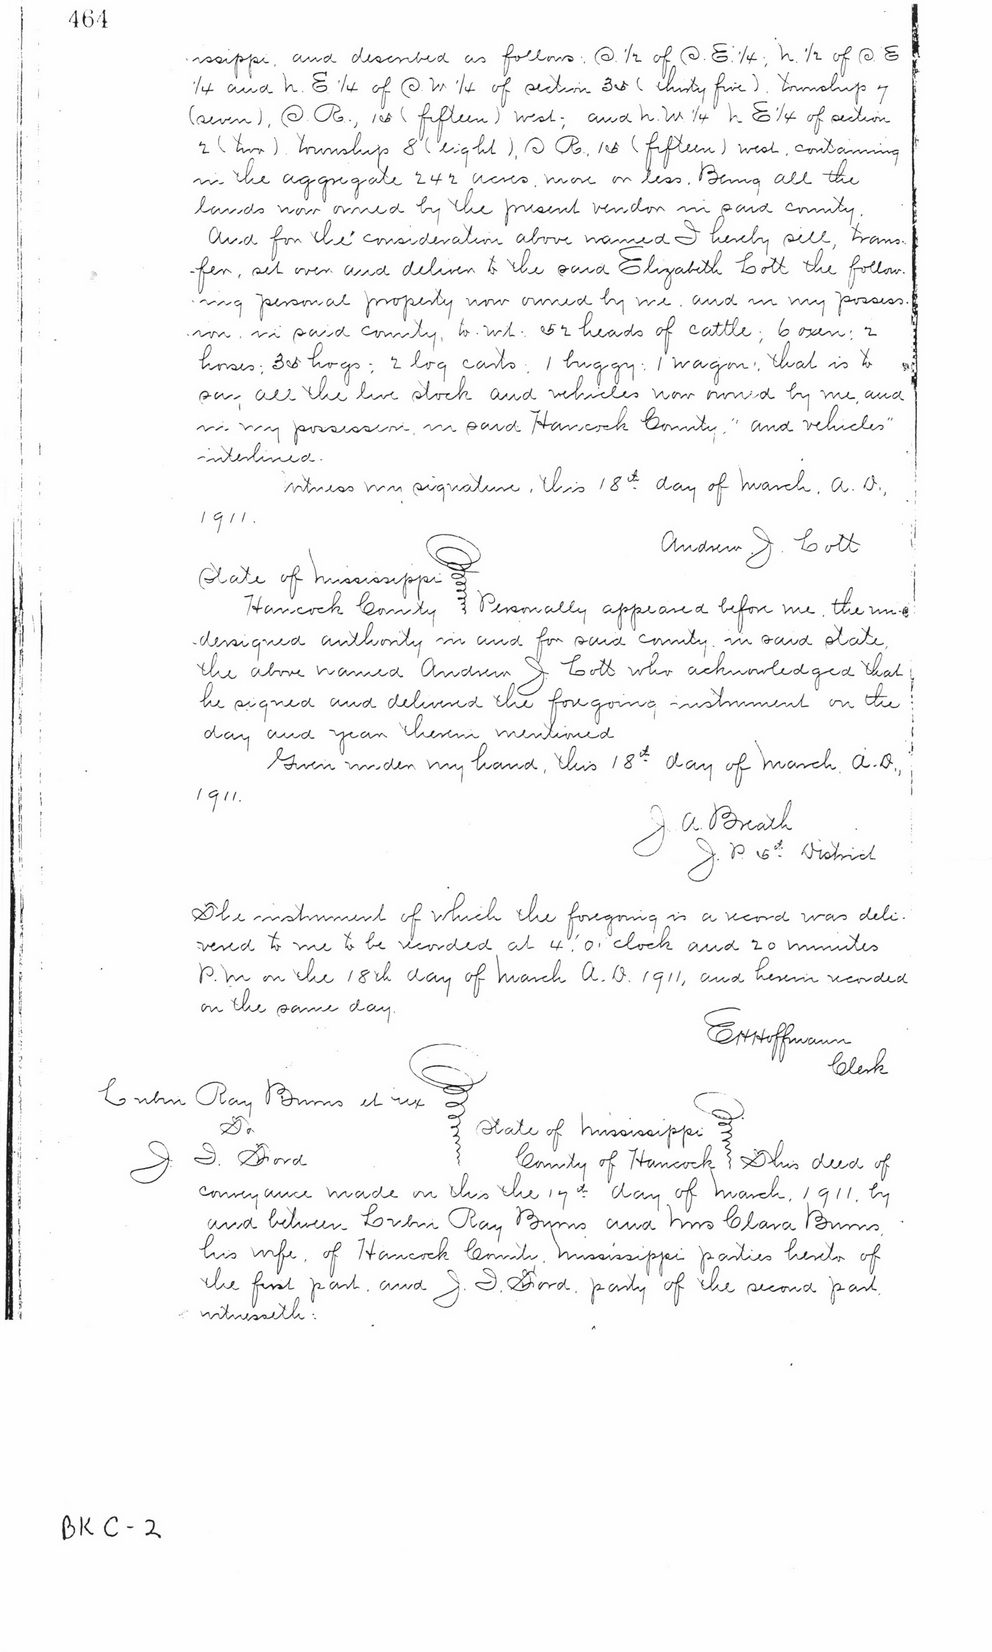 464
issippi, and described as follows: S 1/2 of S. E. 1/4; N. 1/2 of S E
1/4 and N. E 1/4 of S W 1/4 of section 35 (thirty five). Township 7
(seven), S. R., 15 (fifteen) west; and N. W 1/4 N E 1/4 of section
2 (two). Township 8 (eight), S R, 15 (fifteen) west, containing
in the aggregate 242 acres, more or less. Being all the
lands now owned by the present vendor in said county.
And for the consideration above named I hereby sell, trans-
fer, set over and deliver to the said Elizabeth Cott the follow-
ing personal property now owned by me, and in my possess-
ion, in said county, to-wit: 52 heads of cattle; 6 oxen; 2
horses; 35 hogs; 2 log carts; 1 buggy; 1 wagon; that is to
say, all the live stock and vehicles now owned by me, and
in my possession, in said Hancock County, "and vehicles"
interlined.
Witness my signature, this 18th day of March, A. D.,
1911.
Andrew J. Cott
State of Mississippi
Hancock County Personally appeared before me, the un-
dersigned authority in and for said county, in said state,
the above named Andrew J Cott who acknowledged that
he signed and delivered the foregoing instrument on the
day and year therein mentioned
Given under my hand, this 18th day of March, A. D.,
1911.
J. A. Breath
J. P. 5th District
The instrument of which the foregoing is a record was deli-
vered to me to be recorded at 4 o'clock and 20 minutes
P. M on the 18th day of March A. D. 1911, and herein recorded
on the same day.
E H Hoffmann
Clerk
Ray Burns et ux
To State of Mississippi
J. I. Ford County of Hancock This deed of
conveyance made on this the 17th day of March, 1911, by
and between Ray Burns and Mrs Clara Burns,
his wife, of Hancock County, Mississippi parties hereto of
the first part, and J. I. Ford, party of the second part,
witnesseth:
BK C-2